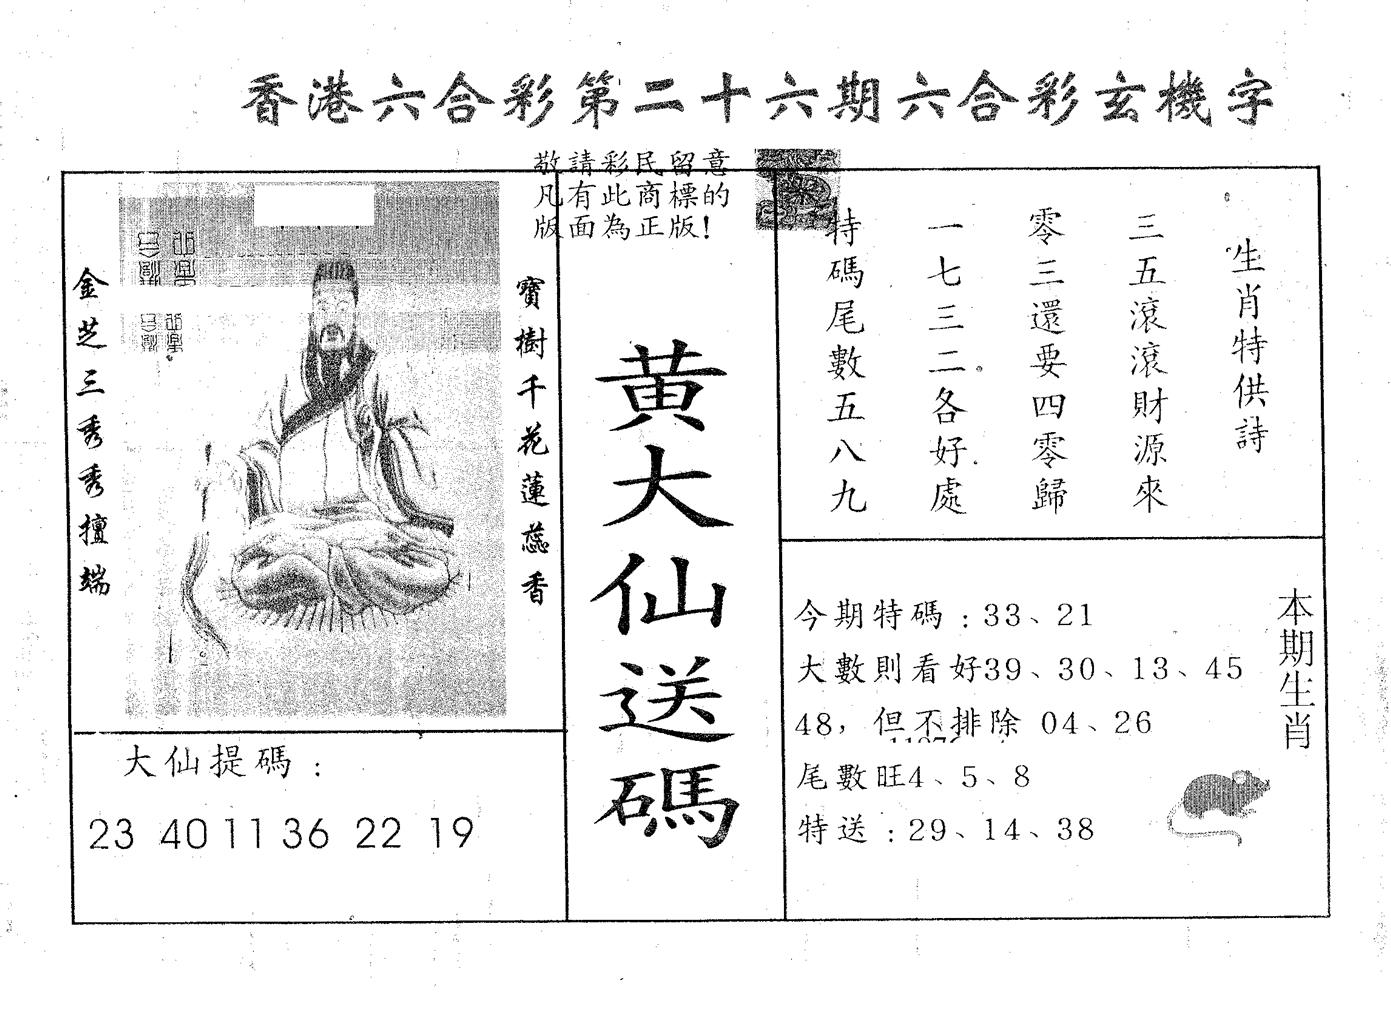 香港六合彩第二十六期六合彩玄機字
敬請彩民留意
凡有此商標的
版面為正版!
寶樹千花蓮蕊香
金芝三秀秀擅端
大仙提碼：
23 40 11 36 22 19
黄大仙送碼
生肖特供詩
三五滾滾財源來
零三還要四零歸
一七三二各好處
特碼尾數五八九
本期生肖
今期特碼：33、21
大數則看好39、30、13、45
48，但不排除 04、26
尾數旺4、5、8
特送：29、14、38